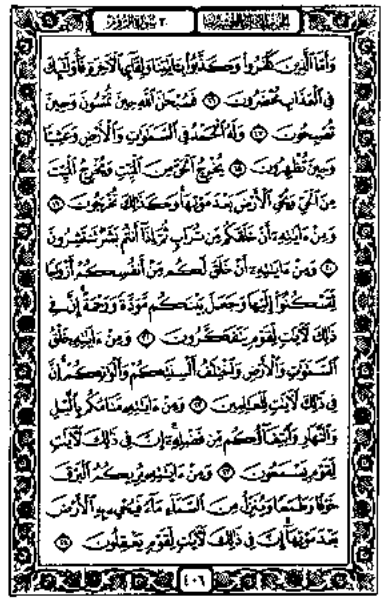 الجزء الحادي والعشرون ٣٠ سورة الروم
وَأَمَّا ٱلَّذِينَ كَفَرُواْ وَكَذَّبُواْ بِـَٔايَٰتِنَا وَلِقَآيِٕ ٱلۡأٓخِرَةِ فَأُوْلَٰٓئِكَ
فِي ٱلۡعَذَابِ مُحۡضَرُونَ ١٦ فَسُبۡحَٰنَ ٱللَّهِ حِينَ تُمۡسُونَ وَحِينَ
تُصۡبِحُونَ ١٧ وَلَهُ ٱلۡحَمۡدُ فِي ٱلسَّمَٰوَٰتِ وَٱلۡأَرۡضِ وَعَشِيّٗا
وَحِينَ تُظۡهِرُونَ ١٨ يُخۡرِجُ ٱلۡحَيَّ مِنَ ٱلۡمَيِّتِ وَيُخۡرِجُ ٱلۡمَيِّتَ
مِنَ ٱلۡحَيِّ وَيُحۡيِ ٱلۡأَرۡضَ بَعۡدَ مَوۡتِهَاۚ وَكَذَٰلِكَ تُخۡرَجُونَ ١٩
وَمِنۡ ءَايَٰتِهِۦٓ أَنۡ خَلَقَكُم مِّن تُرَابٖ ثُمَّ إِذَآ أَنتُم بَشَرٞ تَنتَشِرُونَ
٢٠ وَمِنۡ ءَايَٰتِهِۦٓ أَنۡ خَلَقَ لَكُم مِّنۡ أَنفُسِكُمۡ أَزۡوَٰجٗا
لِّتَسۡكُنُوٓاْ إِلَيۡهَا وَجَعَلَ بَيۡنَكُم مَّوَدَّةٗ وَرَحۡمَةًۚ إِنَّ فِي
ذَٰلِكَ لَأٓيَٰتٖ لِّقَوۡمٖ يَتَفَكَّرُونَ ٢١ وَمِنۡ ءَايَٰتِهِۦ خَلۡقُ
ٱلسَّمَٰوَٰتِ وَٱلۡأَرۡضِ وَٱخۡتِلَٰفُ أَلۡسِنَتِكُمۡ وَأَلۡوَٰنِكُمۡۚ إِنَّ
فِي ذَٰلِكَ لَأٓيَٰتٖ لِّلۡعَٰلِمِينَ ٢٢ وَمِنۡ ءَايَٰتِهِۦ مَنَامُكُم بِٱلَّيۡلِ
وَٱلنَّهَارِ وَٱبۡتِغَآؤُكُم مِّن فَضۡلِهِۦٓۚ إِنَّ فِي ذَٰلِكَ لَأٓيَٰتٖ
لِّقَوۡمٖ يَسۡمَعُونَ ٢٣ وَمِنۡ ءَايَٰتِهِۦ يُرِيكُمُ ٱلۡبَرۡقَ
خَوۡفٗا وَطَمَعٗا وَيُنَزِّلُ مِنَ ٱلسَّمَآءِ مَآءٗ فَيُحۡيِۦ بِهِ ٱلۡأَرۡضَ
بَعۡدَ مَوۡتِهَآۚ إِنَّ فِي ذَٰلِكَ لَأٓيَٰتٖ لِّقَوۡمٖ يَعۡقِلُونَ ٢٤
٤٠٦